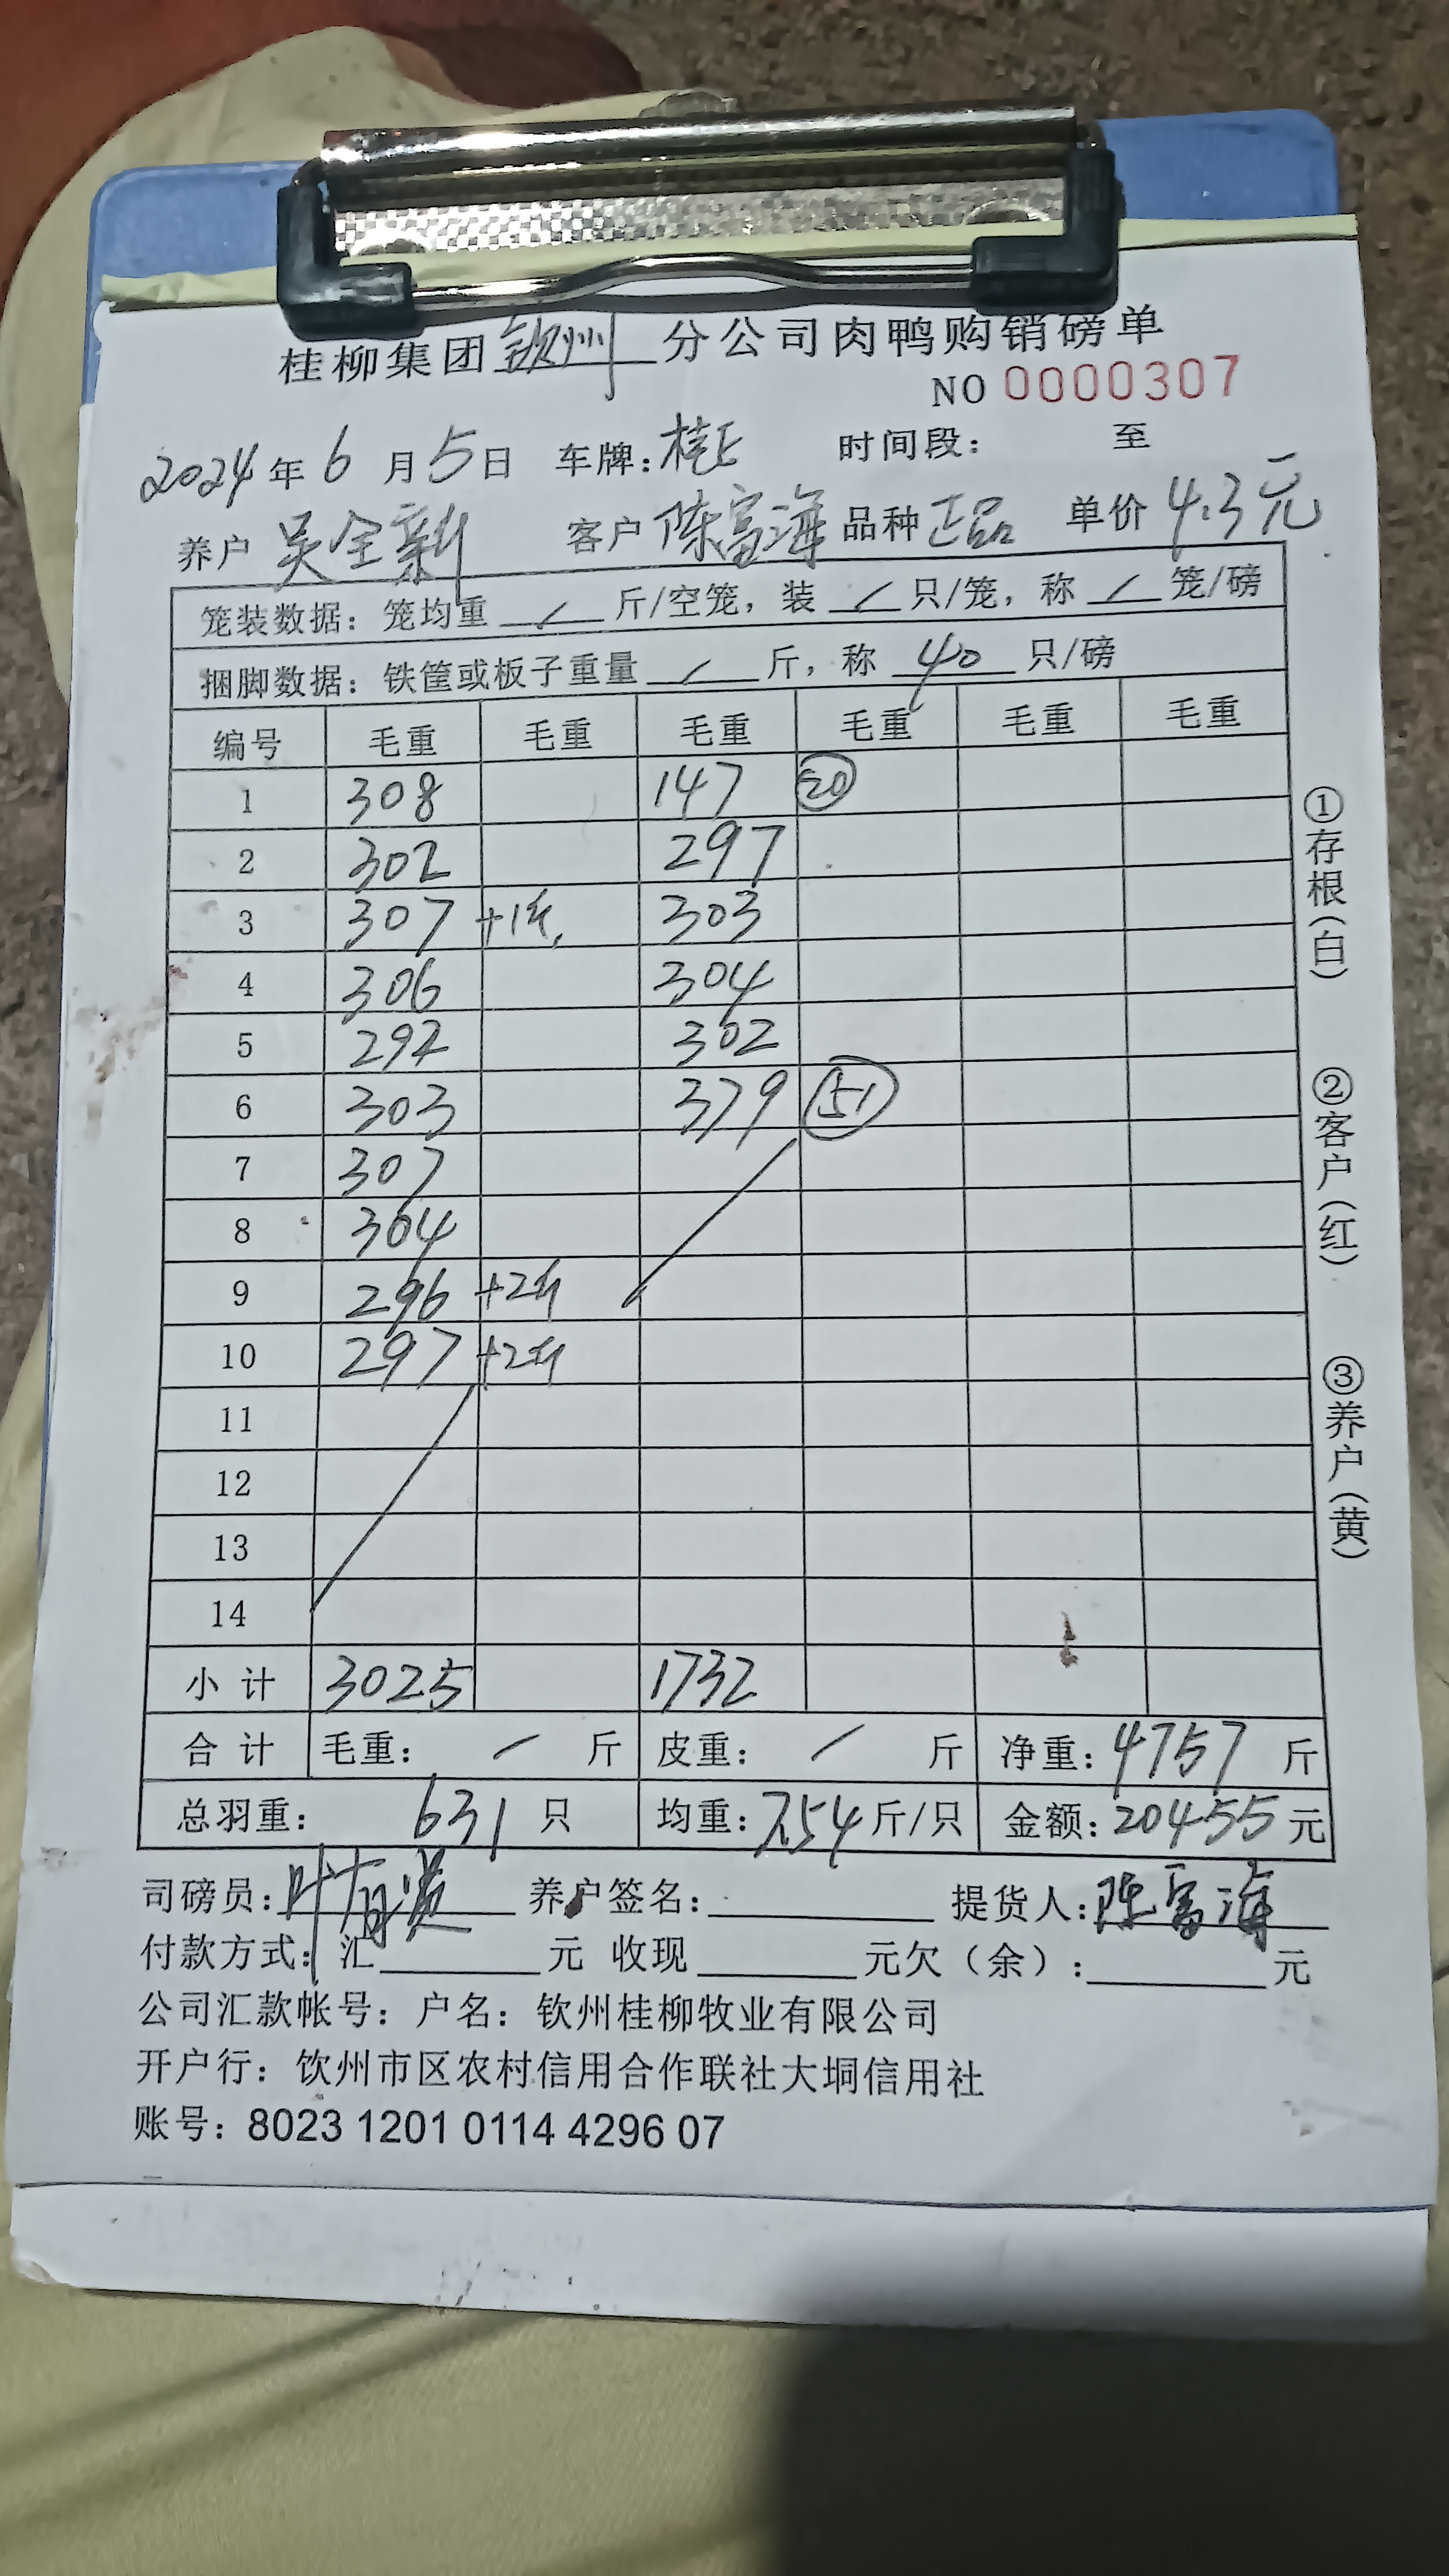 桂柳集团钦州分公司肉鸭购销磅单
NO 0000307
2024年6月5日 车牌:桂E 时间段: 至
养户 吴全新 客户 陈富海 品种 正品 单价 4.3元
笼装数据: 笼均重 / 斤/空笼, 装 / 只/笼, 称 / 笼/磅
捆脚数据: 铁筐或板子重量 / 斤, 称 40 只/磅
编号 毛重 毛重 毛重 毛重 毛重 毛重
1 308 147 20
2 302 297
3 307 +1斤 303
4 306 304
5 292 302
6 303 379 51
7 307
8 304
9 296 +2斤
10 297 +2斤
11
12
13
14
小计 3025 1732
合计 毛重: / 斤 皮重: / 斤 净重: 4757 斤
总羽重: 631 只 均重: 7.54 斤/只 金额: 20455 元
司磅员: 养户签名: 提货人: 陈富海
付款方式: 汇 元 收现 元欠(余): 元
公司汇款帐号: 户名: 钦州桂柳牧业有限公司
开户行: 钦州市区农村信用合作联社大垌信用社
账号: 8023 1201 0114 4296 07
①存根(白)
②客户(红)
③养户(黄)